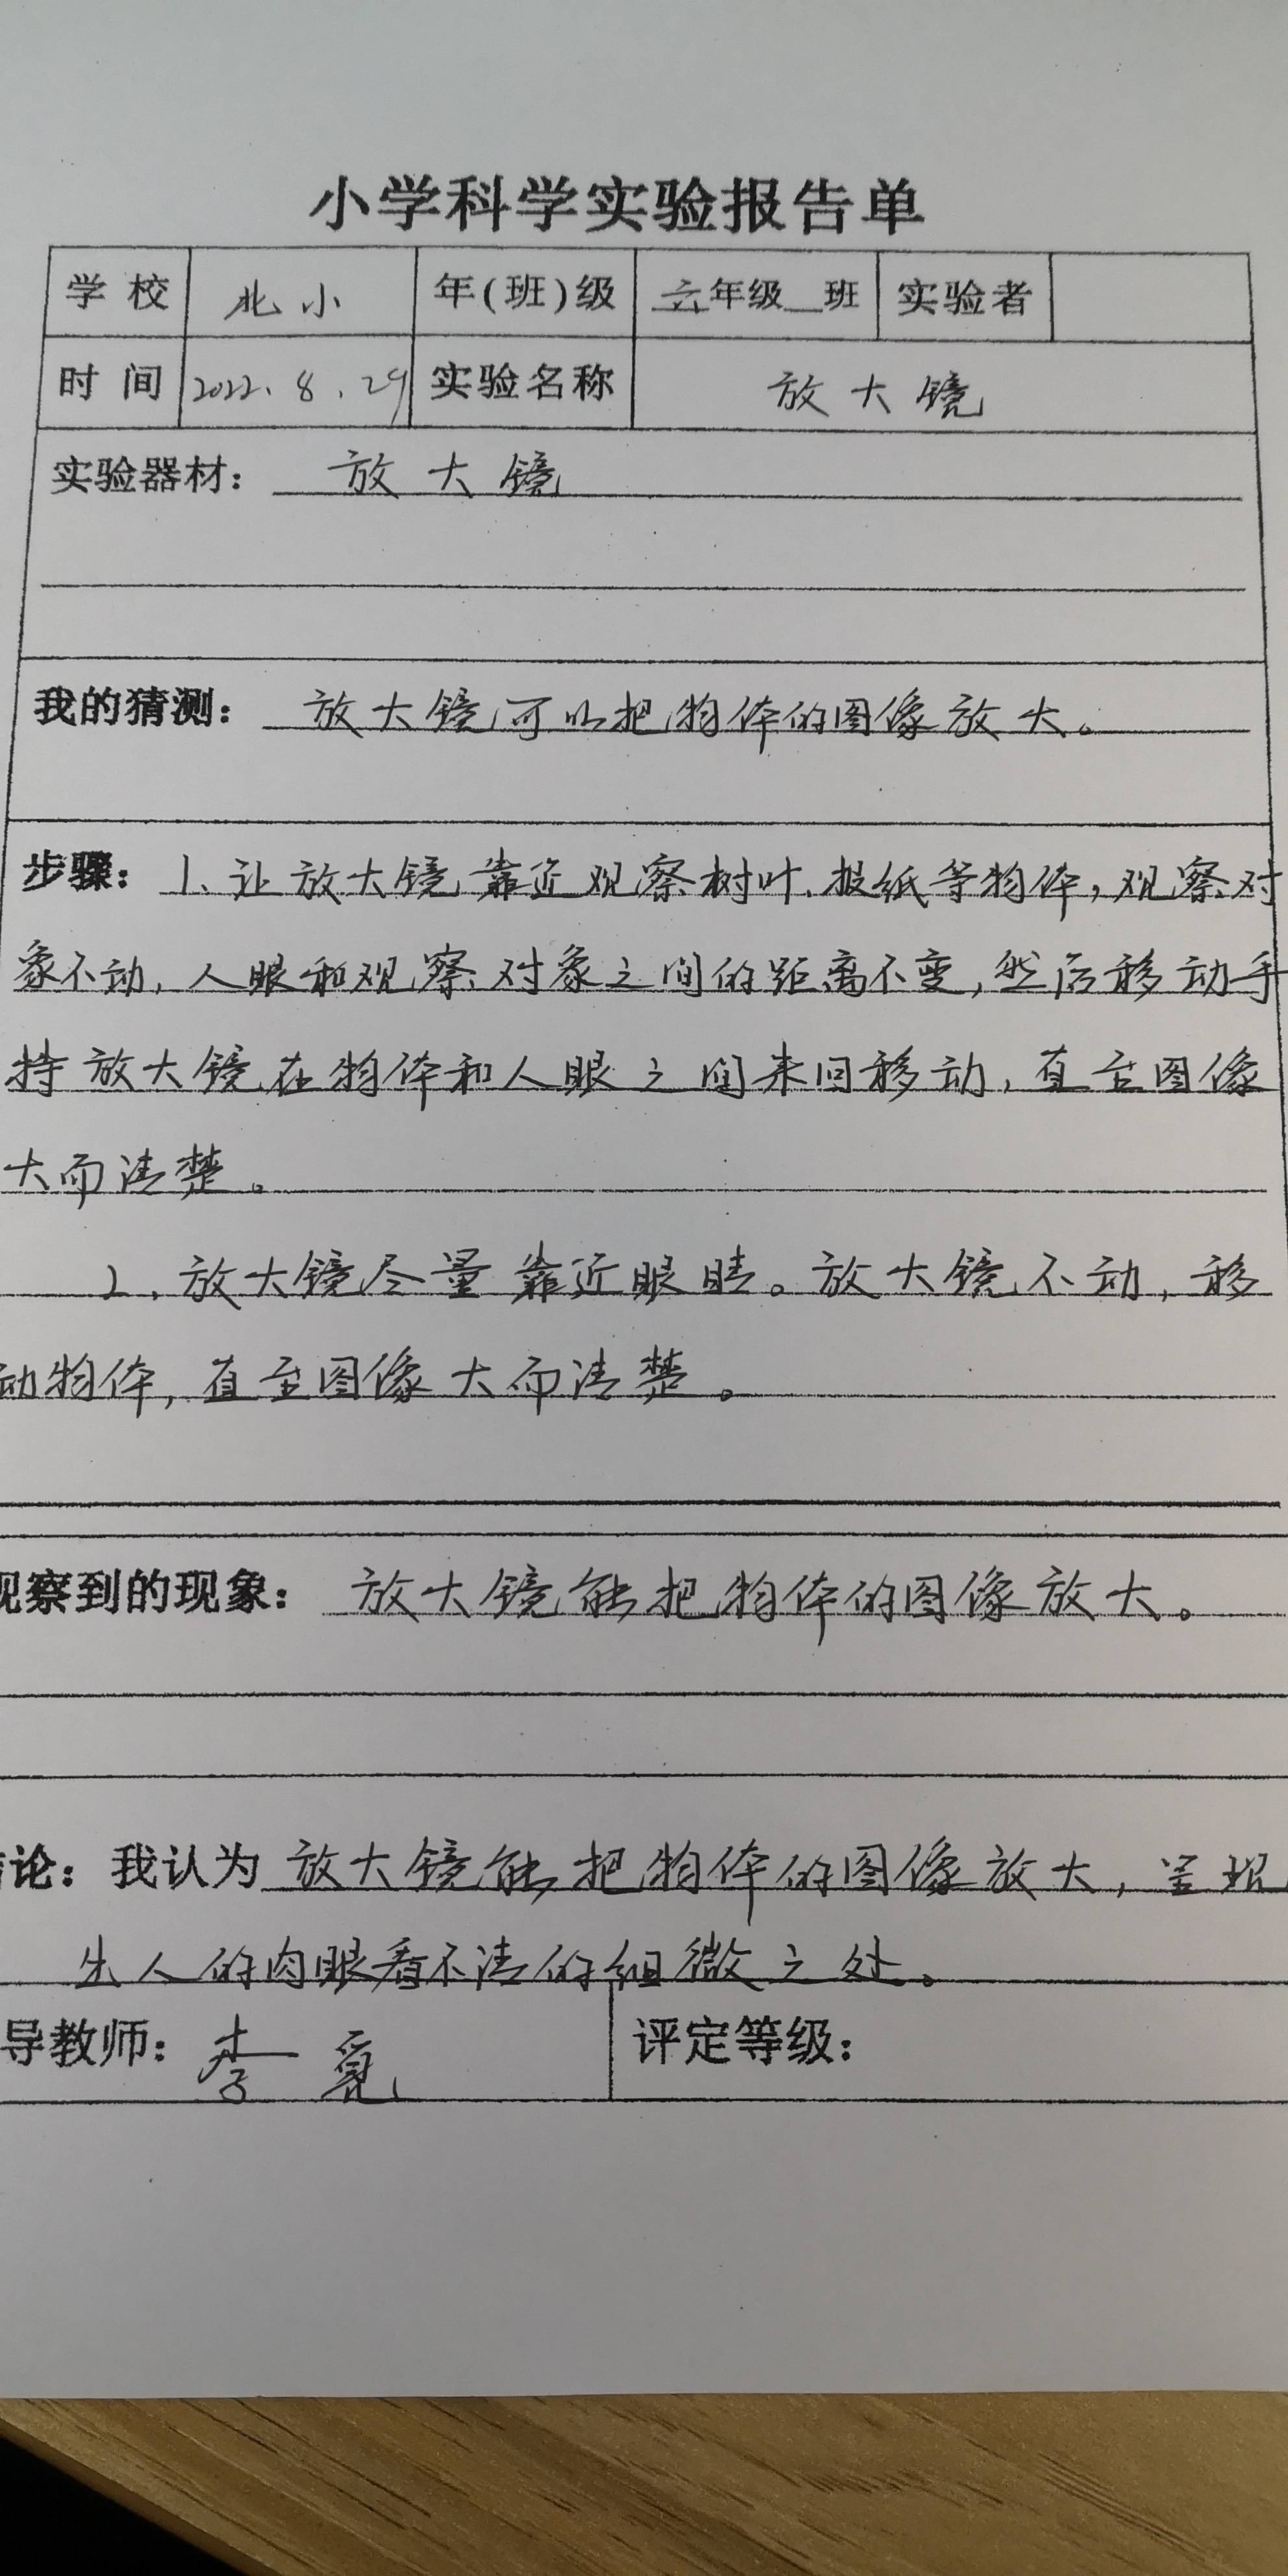 小学科学实验报告单
学校 北小 年(班)级 六年级__班 实验者
时间 2022.8.29 实验名称 放大镜
实验器材: 放大镜
我的猜测: 放大镜可以把物体的图像放大。
步骤: 1、让放大镜靠近观察树叶、报纸等物体,观察对
象不动,人眼和观察对象之间的距离不变,然后移动手
持放大镜在物体和人眼之间来回移动,直至图像
大而清楚。
2、放大镜尽量靠近眼睛。放大镜不动,移
动物体,直至图像大而清楚。
观察到的现象: 放大镜能把物体的图像放大。
结论: 我认为放大镜能把物体的图像放大,呈现
出人的肉眼看不清的细微之处。
导教师: 李 评定等级: